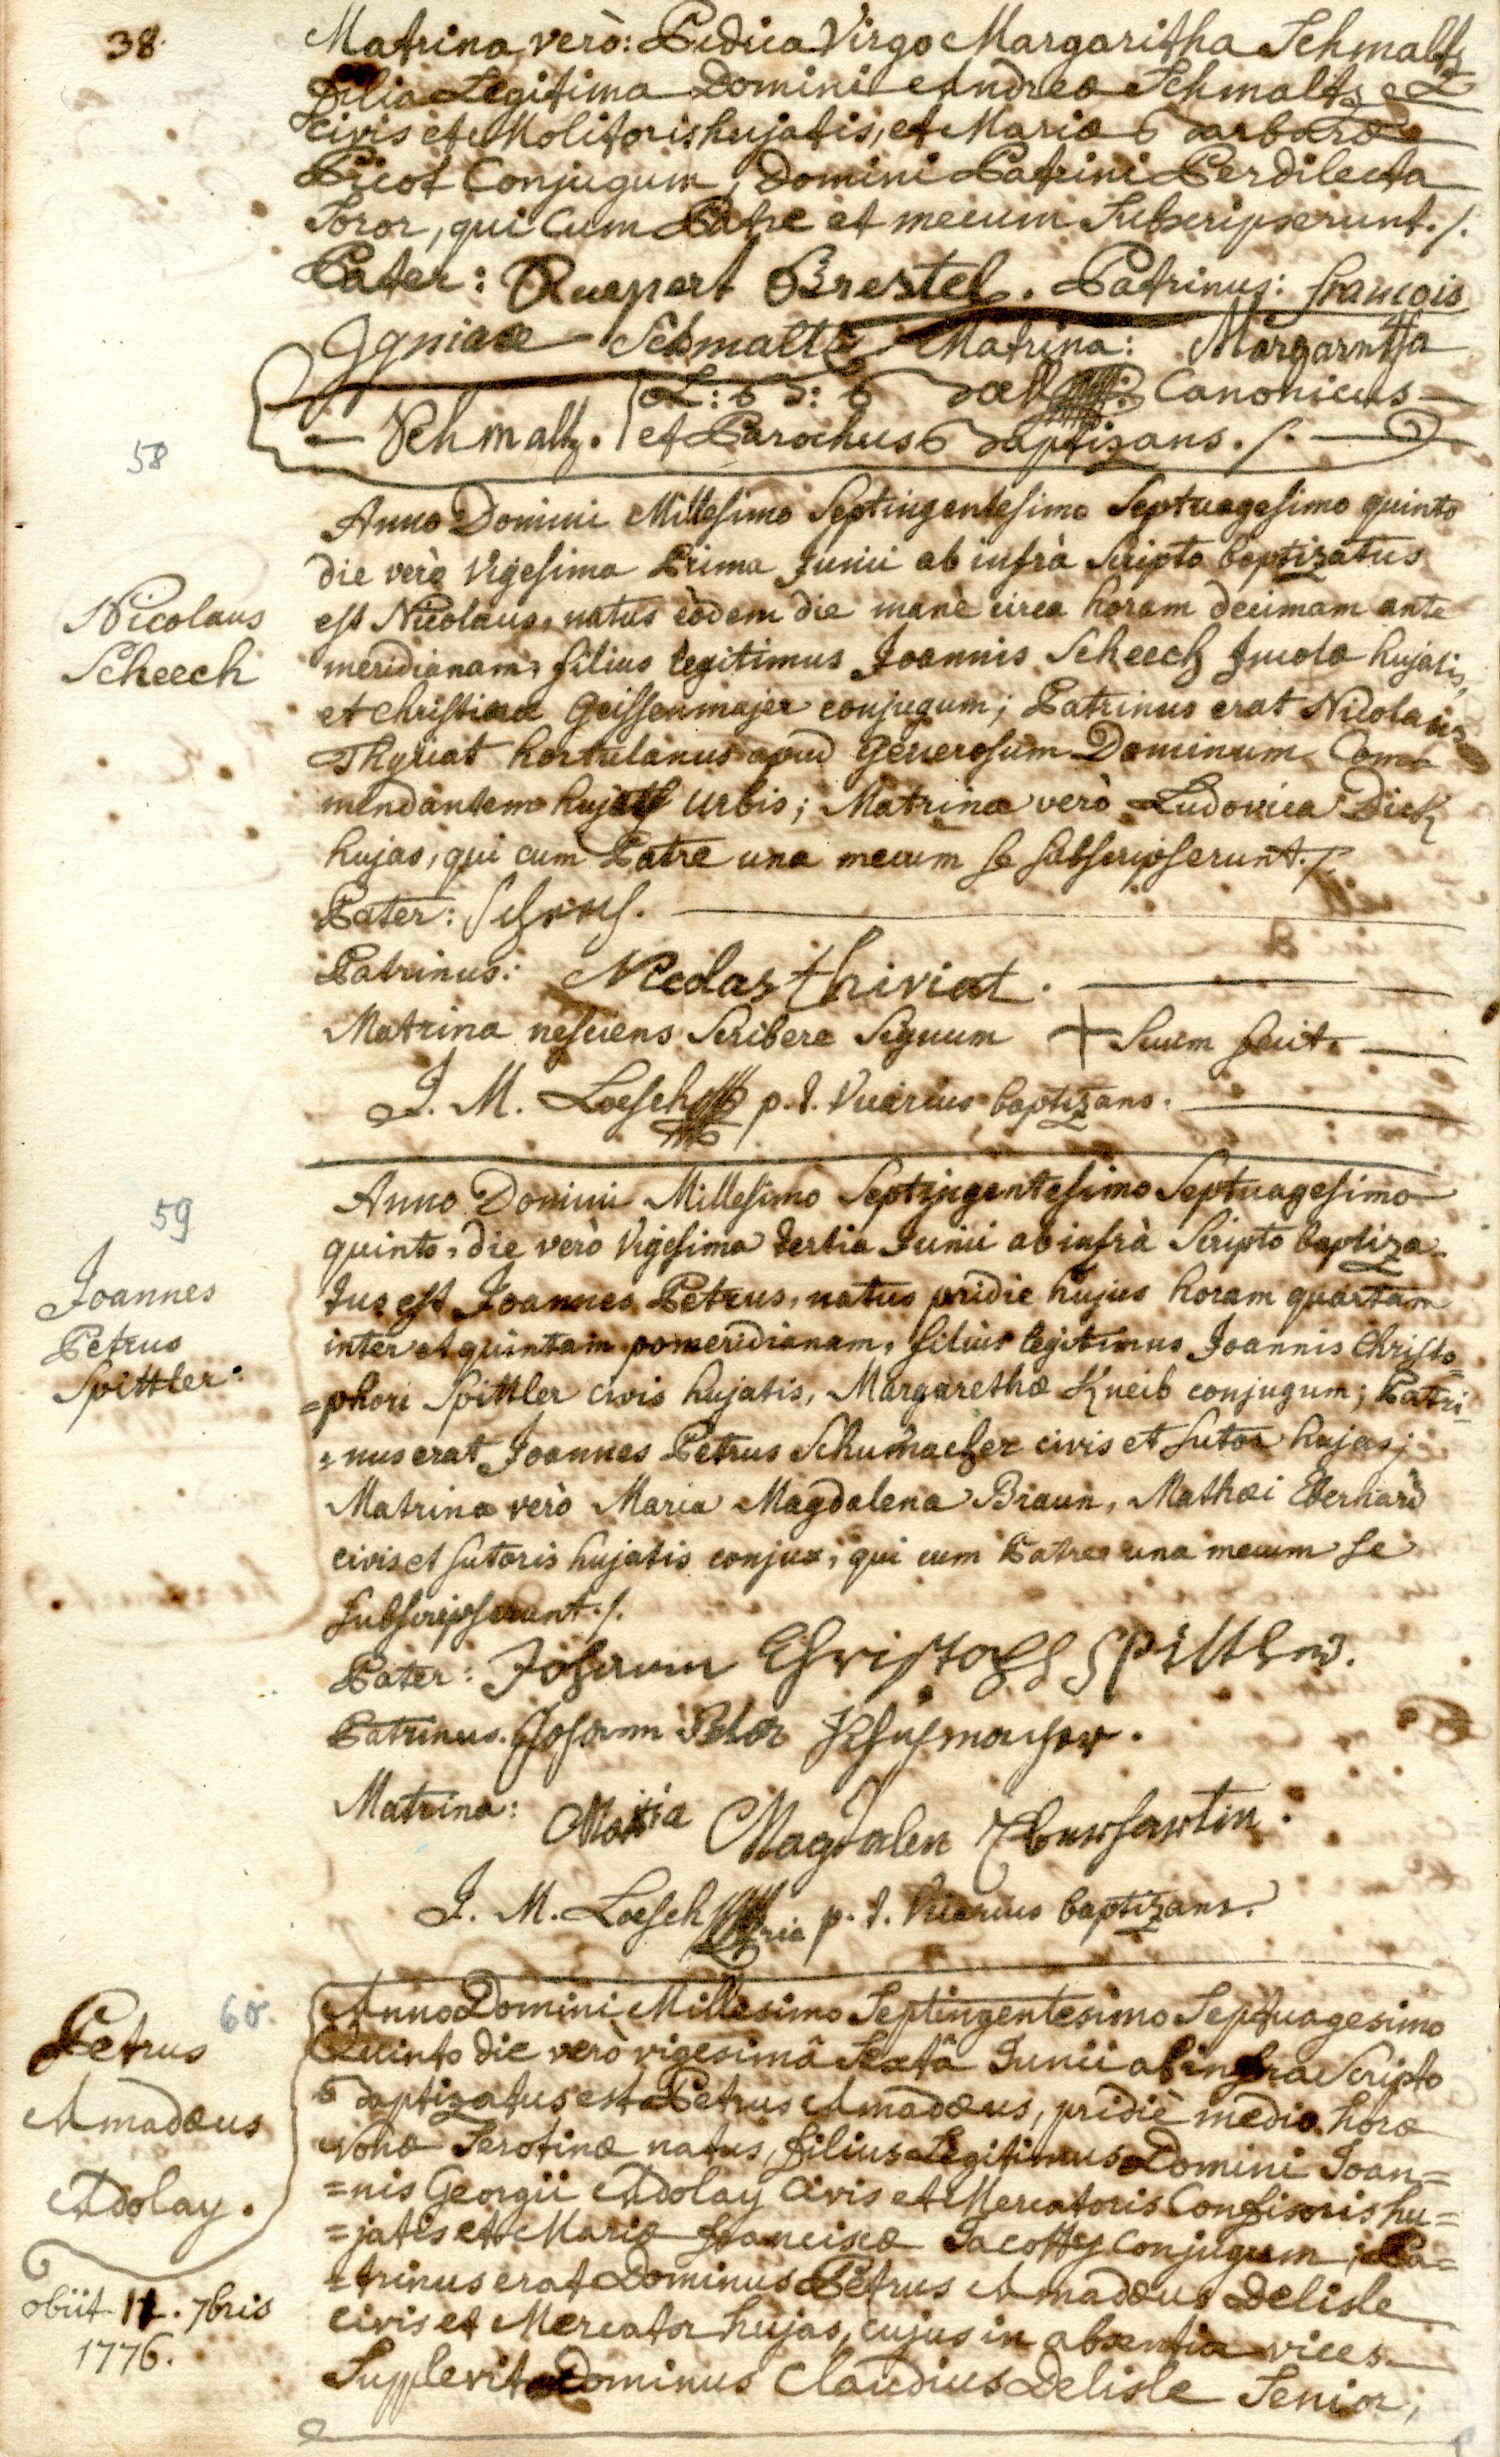 38.
Matrina verò: Pudica Virgo Margaritha Schmaltz
filia Legitima Domini Andreæ Schmaltz
civis et Molitoris hujatis, et Mariæ Barbaræ
Picot Conjugum, Domini Patrini Perdilecta
Soror, qui Cum Patre et mecum Subscripserunt./.
Pater: Ruepert Brestel. Patrinus: francois
Igniace Schmaltz Matrina: Margaritha
Canonicus
Schmaltz. et Parochus Baptizans./.
58
Anno Domini Millesimo Septingentesimo Septuagesimo quinto
die verò Vigesima Prima Junii ab infrà Scripto baptizatus
est Nicolaus, natus eòdem die manè circa horam decimam ante
meridianam, filius legitimus Joannis Scheech Incolæ hujatis,
et Christinæ Geissenmajer conjugum; Patrinus erat Nicolaus
Thyriat hortulanus apud Generosum Dominum Com-
mendantem hujatis Urbis; Matrina verò Ludovica Dick
hujas, qui cum Patre una mecum se subscripserunt./.
Nicolaus
Scheech
Pater:
Patrinus: Nicolas thiriat.
Matrina nesciens Scribere Signum + Suum fecit.
J. M. Loesch p. t. Vicarius baptizans.
59
Joannes
Petrus
Spittler.
Anno Domini Millesimo Septingentesimo Septuagesimo
quinto, die verò Vigesima tertia Junii ab infrà Scripto baptiza-
tus est Joannes Petrus, natus pridie hujus horam quartam
inter et quintam pomeridianam, filius legitimus Joannis Christo=
=phori Spittler civis hujatis, Margarethæ Kneib conjugum; Patri=
=nus erat Joannes Petrus Schumacher civis et sutor hujas;
Matrina verò Maria Magdalena Braun, Mathæi Eberhard
civis et sutoris hujatis conjux, qui cum Patre una mecum se
subscripserunt./.
Pater: Johann Christoph Spittler.
Patrinus. Johann Peter Schuhmacher.
Matrina: Maria Magdalen Eberhartin.
J. M. Loesch p. t. Vicarius baptizans.
60.
Petrus
Amadæus
Adolay.
obiit 11. 7bris
1776.
Anno Domini Millesimo Septingentesimo Septuagesimo
Quinto die verò vigesimâ Sextâ Junii ab infra Scripto
Baptizatus est Petrus Amadæus, pridiè mediâ horæ
Nonæ Serotinæ natus, filius Legitimus Domini Joan=
=nis Georgii Adolay Civis et Mercatoris Confisoris hu=
=jatis et Mariæ franciscæ Jacotty Conjugum; Pa=
=trinus erat Dominus Petrus Amadæus Delisle
civis et Mercator hujas, cujus in absentia vices
Supplevit Dominus Claudius Delisle Senior;